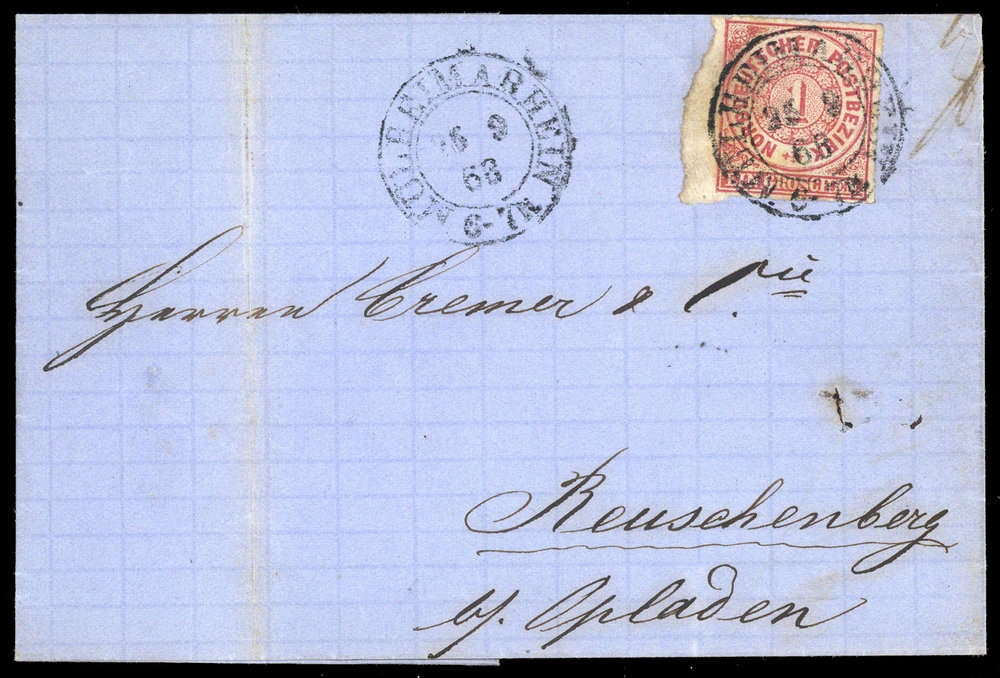 MÜLHEIM A RHEIN
26 9
68
6-7N.
NORDDEUTSCHER POSTBEZIRK
1
GROSCHEN
26 9
68
Herren Cremer & Cie
Reuschenberg
b/ Opladen